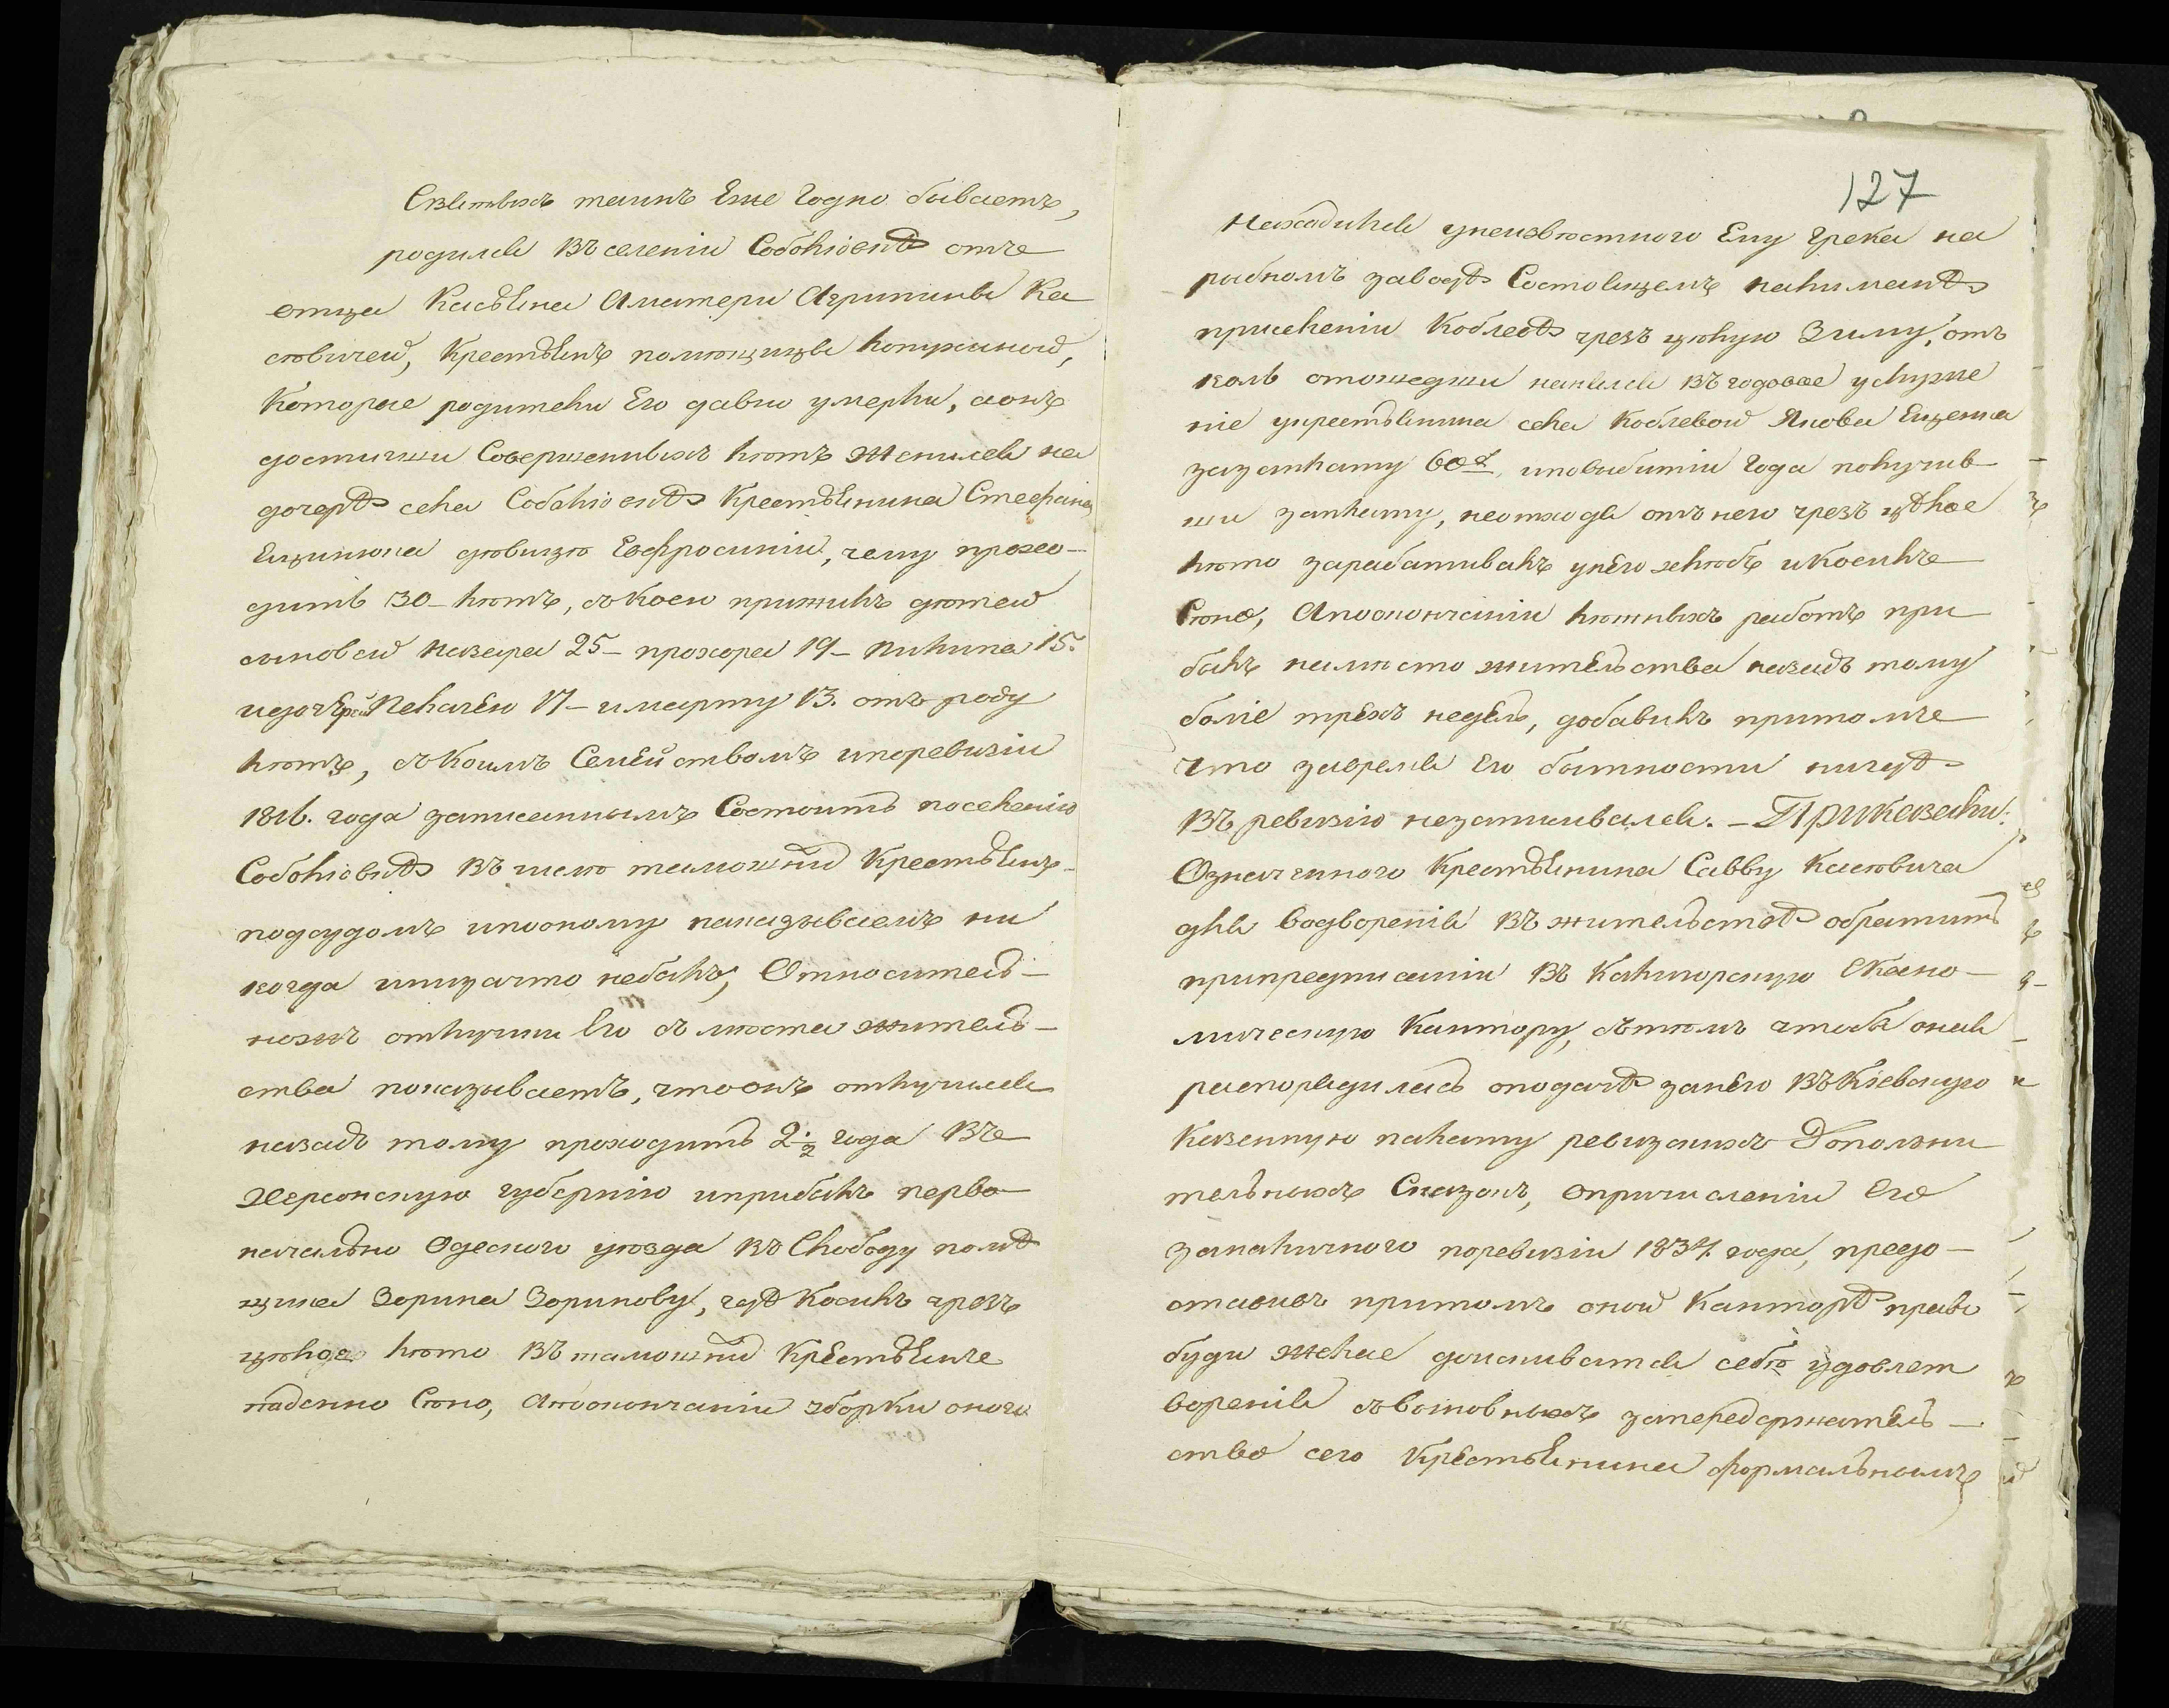 Святыхъ таинъ Еже Годно бываетъ,
родился въ селеніи Соболювкѣ отъ
отца Касьяна Аматери Агрипины Ка
сювичей, Крестьянъ помющицы
которые родители Его давно умерли, аонъ
достигши Совершенныхъ лютъ женился на
дочерѣ села Соболювкѣ Крестьянина Стефана
дювицю Ефросиніи, чему прохо-
дитъ 30-лютъ, съ Коею прижилъ дютей
сыновей Назара 25- прохора 19- Пилипа 15.
идочерей Пелагею 17- имарту 13. отъ роду
лютъ, съ Коимъ Семействомъ иноревизіи
1816. года записаннымъ Состоитъ поселенію
Соболювкѣ въ числю таможній Крестьянъ
подсудомъ ипооному наказываемъ ни
когда инизачто небылъ; Относитель-
ножъ отлучки Его съ мюста житель-
ства показываетъ, чтоонъ отлучился
назадъ тому проходитъ 2½ года въ
Херсонскую губернію иприбылъ перво-
начально Одеского уюзда въ Слободу помѣ
щика Зорина Зоринову, гдѣ Косилъ чрезъ
цюлое люто въ таможній Крестьянъ
паденно Сюно, Апоокончаніи зборки оного

127
Находился унеизвюстного Ему Грека на
рыбномъ заводѣ Состоящемъ налиманѣ
приселеніи Коблевѣ чрезъ цюлую Зиму, отъ
коль отошедши нанялся въ годовое услуже
ніе укрестьянина села Коблевой Якова Ещенка
зазаплату 60 иповыбытіи Года получив-
ши заплату, неотходя отъ него чрезъ цѣлое
люто зарабативалъ унего хлюбъ иКосилъ
Сюно, Апоокончаніи лютныхъ работъ при
былъ намюсто жительства назадъ тому
боліе трехъ недель, добавилъ притомъ
что завремя Его бытности нигдѣ
въ ревизію незаписывался. - Приказали:
Означенного Крестьянина Савву Касювича
для водворенія въ жительство обратить
припредписаніи въ Калигорскую Економ-
мическую Контору, сътюмъ чтобы онаЯ
распорядилась оподачѣ занего въ Кіевскую
Казенную палату ревизскихъ Дополни
тельныхъ Сказокъ, опричисленіи Его
запаличного поревизіи 1834. года, предо-
ставивъ притомъ оной Канторѣ право
буди желае доискиватся себю удовлет
воренія съ виновныхъ запередержатель-
ство сего Крестьянина формальнымъ